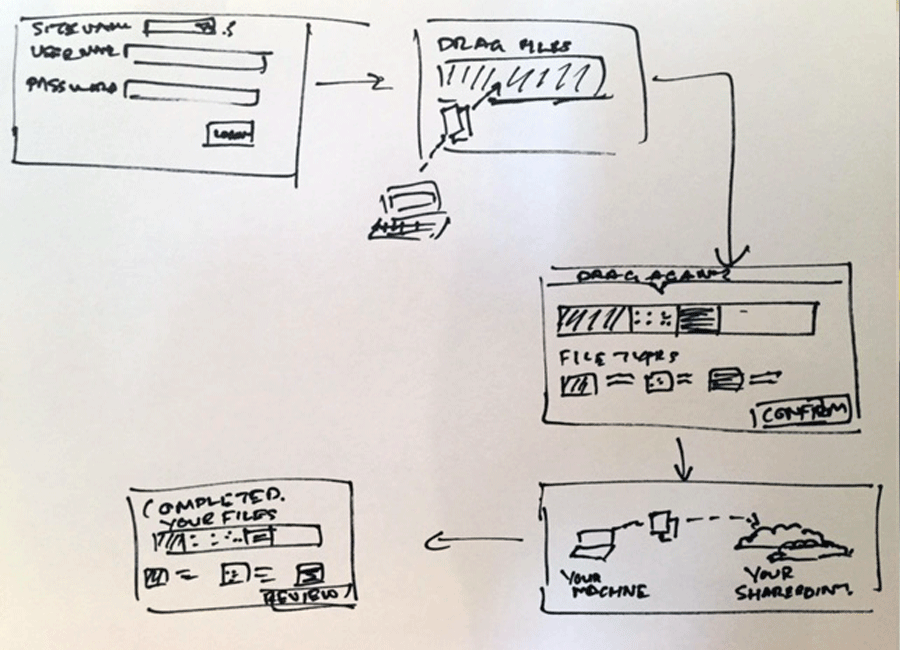 SITENAME
USERNAME
PASSWORD
LOGIN
DRAG FILES
DRAG AGAIN?
FILE TYPES
CONFIRM
YOUR
MACHINE
YOUR
SHAREPOINT.
COMPLETED.
YOUR FILES
REVIEW